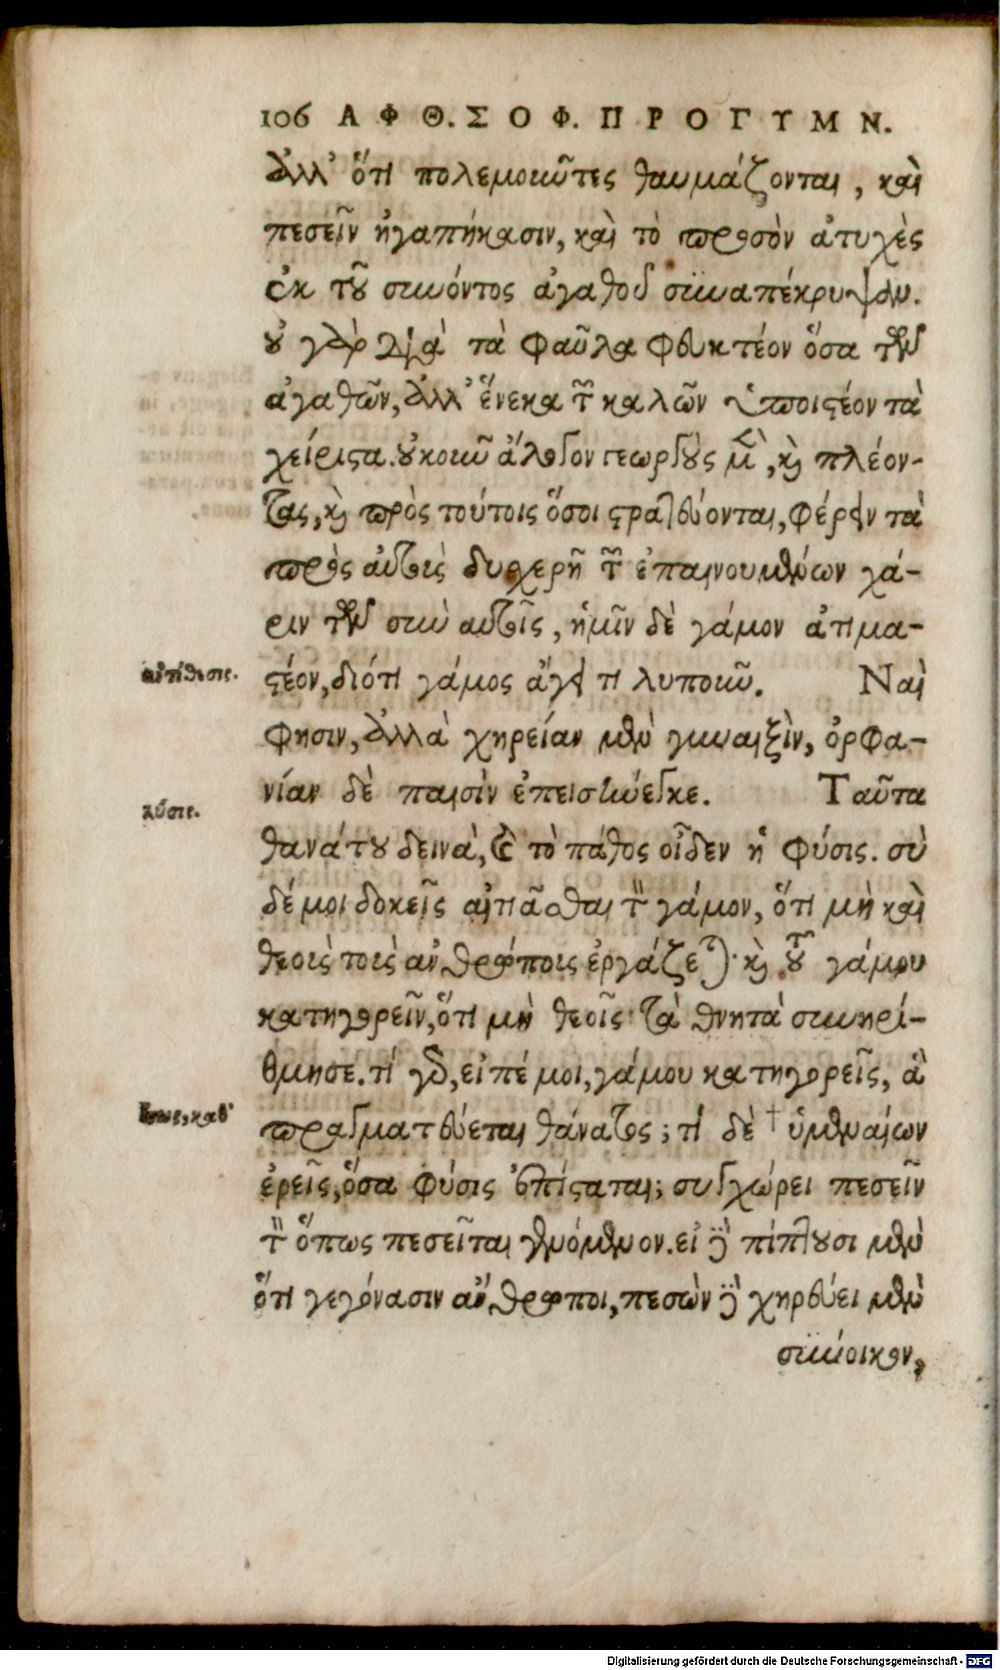 106 ΑΦΘ. ΣΟΦ. ΠΡΟΓΥΜΝ.
ἀλλ' ὅτι πολεμοιῶτες θαυμάζονται, καὶ
πεσεῖν ἠγαπήκασιν, καὶ τὸ προσὸν ἀτυχὲς
ἐκ τοῦ συνόντος ἀγαθοῦ συναπέκρυψαν.
οὐ γὰρ διὰ τὰ φαῦλα φευκτέον ὅσα τῶν
ἀγαθῶν, ἀλλ' ἕνεκα τῶν καλῶν ὑποιστέον τὰ
χείριστα. οὐκοῦν ἄλογον γεωργοὺς μὲν, καὶ πλέον-
τας, καὶ πρὸς τούτοις ὅσοι στρατεύονται, φέρειν τὰ
πρὸς αὐτοὺς δυσχερῆ τῶν ἐπαινουμένων χά-
ριν τῶν σὺν αὐτοῖς, ἡμῖν δὲ γάμον ἀτιμα-
ἀντίθεσις.
στέον, διότι γάμος ἄγει τι λυποῦν. Ναὶ
φησιν, ἀλλὰ χηρείαν μὲν γυναιξὶν, ὀρφα-
νίαν δὲ παισὶν ἐπεισήνεγκε. Ταῦτα
λύσις.
θανάτου δεινὰ, καὶ τὸ πάθος οἶδεν ἡ φύσις. σὺ
δέ μοι δοκεῖς αἰτιᾶσθαι τὸν γάμον, ὅτι μὴ καὶ
θεοὺς τοὺς ἀνθρώπους ἐργάζεται. καὶ τοῦ γάμου
κατηγορεῖν, ὅτι μὴ θεοῖς τὰ θνητὰ συνηρί-
θμησε. τί γὰρ, εἰπέ μοι, γάμου κατηγορεῖς, ἃ
ἴσως, καθ'
πραγματεύεται θάνατος; τί δὲ † ὑμεναίων
ἐρεῖς, ὅσα φύσις ἐπίσταται; συγχώρει πεσεῖν
τὸν ὅπως πεσεῖται γενόμενον. εἰ δὲ πίπτουσι μὲν
ὅτι γεγόνασιν ἄνθρωποι, πεσὼν δὲ χηρεύει μὲν
σύνοικον,
Digitalisierung gefördert durch die Deutsche Forschungsgemeinschaft - DFG